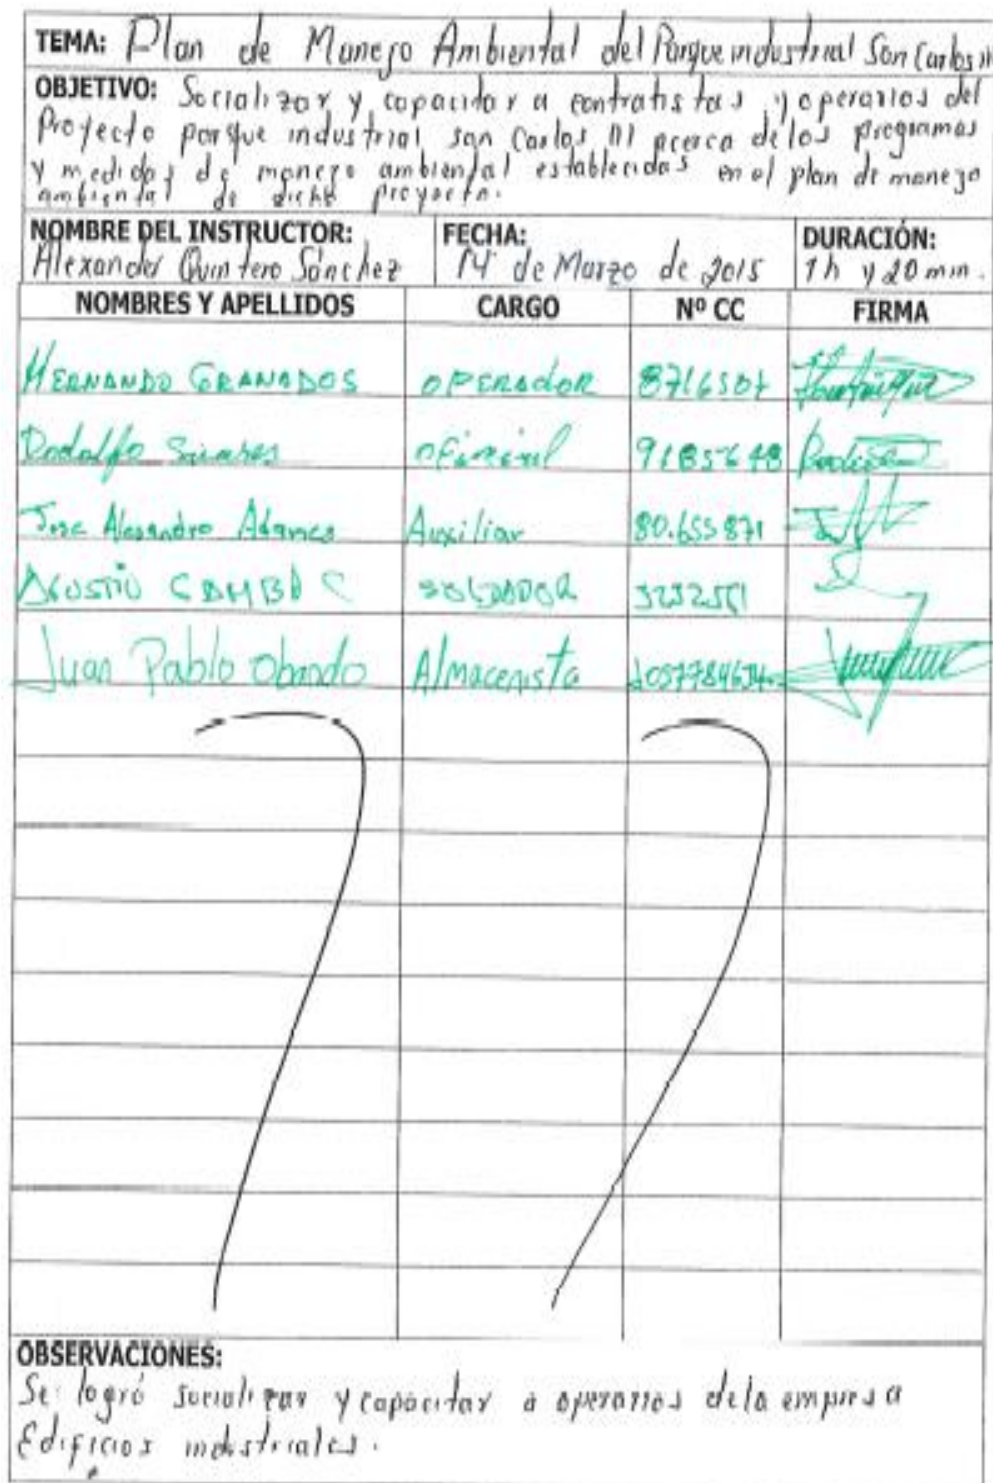 TEMA: Plan de Manejo Ambiental del Parque industrial San Carlos III
OBJETIVO: Socializar y capacitar a contratistas y operarios del
Proyecto parque industrial san Carlos III acerca de los programas
y medidas de manejo ambiental establecidas en el plan de manejo
ambiental de dicho proyecto.
NOMBRE DEL INSTRUCTOR: FECHA: DURACIÓN:
Alexander Quintero Sánchez 14 de Marzo de 2015 1h y 20 min.
NOMBRES Y APELLIDOS CARGO Nº CC FIRMA
HERNANDO GRANADOS OPERADOR
Rodolfo oficial
Jose Auxiliar 80.655871
SOLDADOR
Juan Pablo Obando Almacenista
OBSERVACIONES:
Se logró socializar y capacitar a operarios de la empresa
Edificios industriales.